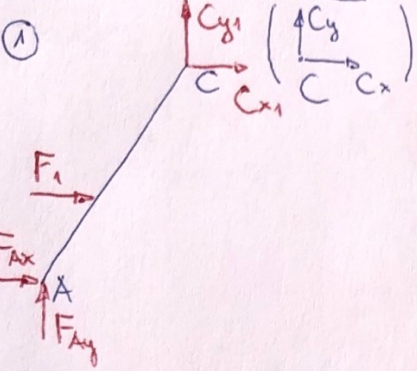 1
Cy1
Cy
C
Cx1
C
Cx
F1
FAx
A
FAy